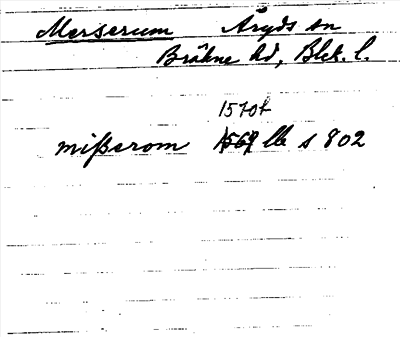 Merserum Åryds sn
Bräkne hd, Blek. l.
1570f
mißerom 1569 lb s 802